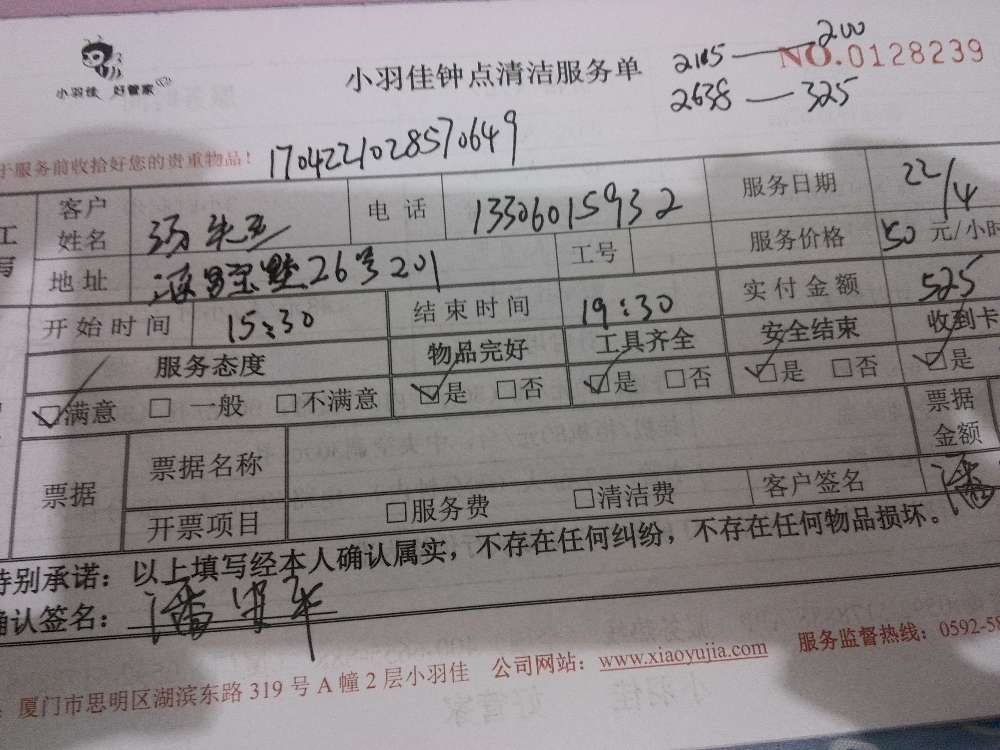 小羽佳 好管家
小羽佳钟点清洁服务单
NO.0128239
2105 — 200
2638 — 325
于服务前收拾好您的贵重物品!
1704221028570649
客户姓名 电话 13306015932 服务日期 22/4
地址 26号201 工号 服务价格 50 元/小时
开始时间 15:30 结束时间 19:30 实付金额 525
服务态度 物品完好 工具齐全 安全结束 收到卡
☑满意 □一般 □不满意 ☑是 □否 ☑是 □否 ☑是 □否 ☑是
票据 票据名称 票据金额
开票项目 □服务费 □清洁费 客户签名 潘
特别承诺:以上填写经本人确认属实,不存在任何纠纷,不存在任何物品损坏。
确认签名: 潘
厦门市思明区湖滨东路319号A幢2层小羽佳 公司网站:www.xiaoyujia.com 服务监督热线:0592-58